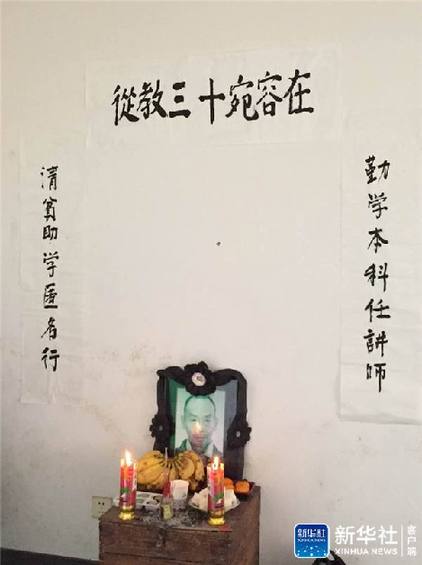 從教三十宛容在
勤学本科任讲师
清贫助学匿名行
新华社
XINHUA NEWS
客户端